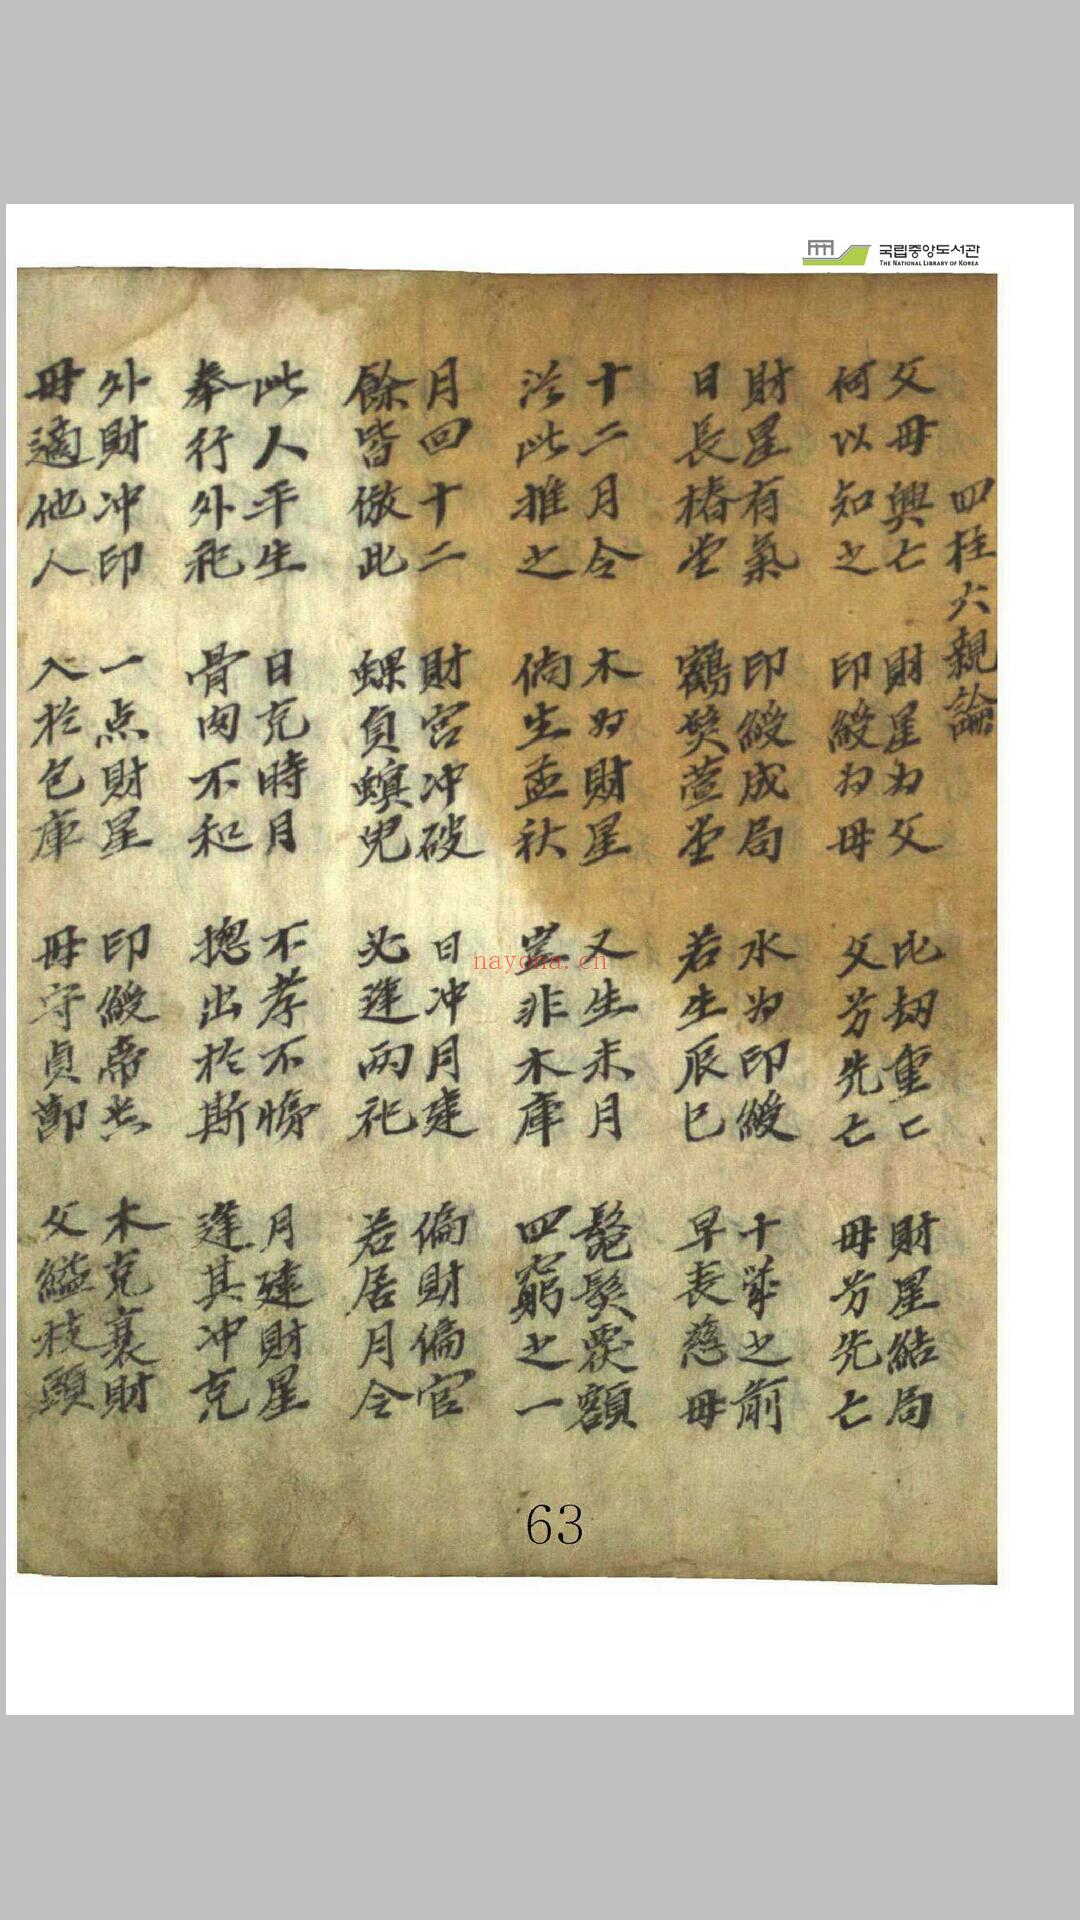 국립중앙도서관
THE NATIONAL LIBRARY OF KOREA
四柱六親論
父母興亡
何以知之
財星为父
印綬为母
比劫重匕
父芳先亡
財星結局
母芳先亡
財星有氣
日長椿堂
印綬成局
鶴髮萱堂
水为印綬
若生辰巳
十歲之前
早喪慈母
十二月令
此推之
木为財星
倘生孟秋
又生未月
豈非木庫
髮覆額
四窮之一
月回十二
餘皆倣此
財宮冲破
螺負螟兒
日冲月建
必逢兩祀
偏財偏官
若居月令
此人平生
奉行外祀
日克時月
骨肉不和
不孝不悌
摠出於斯
月建財星
逢其冲克
外財冲印
母適他人
一点財星
入於包庫
印綬
母守貞節
木克衰財
父縊枝頭
nayona.cn
63